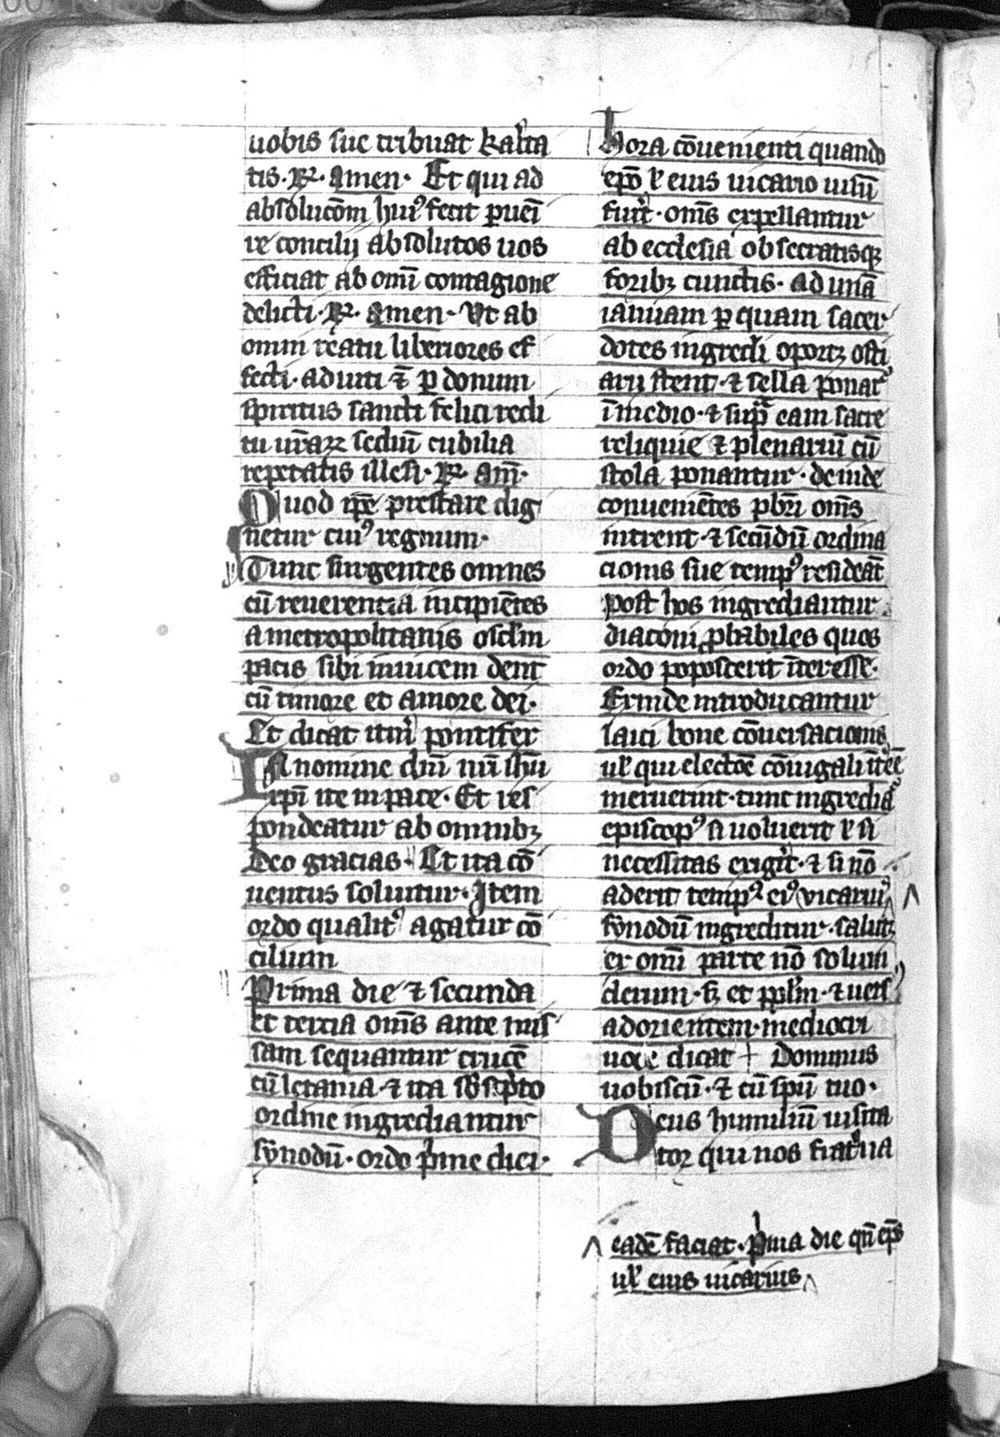 uobis sue tribuat karita
tis. R. Amen. Et qui ad
absolucōm huiꝰ fecit ꝑueī
re concilij absolutos uos
efficiat ab omī contagione
delicti. R. Amen. Vt ab
omni reatu liberiores ef
fecti. aduiti & ꝑ donum
spiritus sancti felici redi
tu ur̄aꝝ sediū cubilia
repetatis illesi. R. am̄.
Quod ip̄e prestare dig
netur cuiꝰ regnum.
Tunc surgentes omnes
cū reuerencia incipiētes
a metropolitanis osclm̄
pacis sibi inuicem dent
cū timore et amore dei.
Et dicat itm̄ pontifex
In nomine dn̄i nr̄i ihū
xpi ite in pace. Et res
pondeatur ab omnibꝫ
Deo gracias. Et ita cō
uentus soluitur. Item
ordo qualitꝰ agatur cō
cilium
Prima die & secunda
et tercia om̄s ante mis
sam sequantur crucē
cū letania. & ita sb̄scͥpto
ordine ingrediantur
synodū. ordo pͥme diei.
hora cōuenienti quando
ep̄o ł eius uicario uisū
fuit. om̄s expellantur
ab ecclesia obseratisqꝫ
foribꝫ cunctis. ad unā
ianuam ꝑ quam sacer
dotes ingredi oportꝫ osti
arii stent. & sella ponat᷑
ī medio. & supͣ eam sacre
reliquie & plenariū cū
stola ponantur. deinde
conueniētes pbri om̄s
intrent. & secūdū ordina
cionis sue tempꝰ resideāt
Post hos ingrediantur
diaconi ꝓbabiles quos
ordo poposcerit īteresse.
Exinde introducantur
laici bone cōuersacionis
ul̓ qui electōe cōiugali ītēē
meruerint. tunc ingrediat᷑
episcopꝰ si uoluerit ł si
necessitas exigͥt. & si nō
aderit tempꝰ eiꝰ vicariꝰ
synodū ingreditur. salutꝫ
ex omī parte nō solum
clerum. sꝫ et ppl̄m. & uersꝰ
ad orientem. mediocri
uoce dicat + Dominus
uobiscū. & cū spū tuo.
Deus humiliū uisita
tor qui nos fratͥua
eadē faciat. pͥma die qn̄ ep̄s
ul̓ eius uicarius